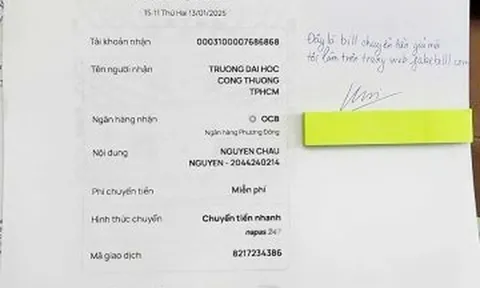 15:11 Thứ Hai 13/01/2025
Tài khoản nhận 0003100007686868
Tên người nhận TRUONG DAI HOC
CONG THUONG
TPHCM
Ngân hàng nhận OCB
Ngân hàng Phương Đông
Nội dung NGUYEN CHAU
NGUYEN - 2044240214
Phí chuyển tiền Miễn phí
Hình thức chuyển Chuyển tiền nhanh
napas 247
Mã giao dịch 8217234386
Đây là bill chuyển tiền giả mà
tôi làm trên trang web fakebill.com